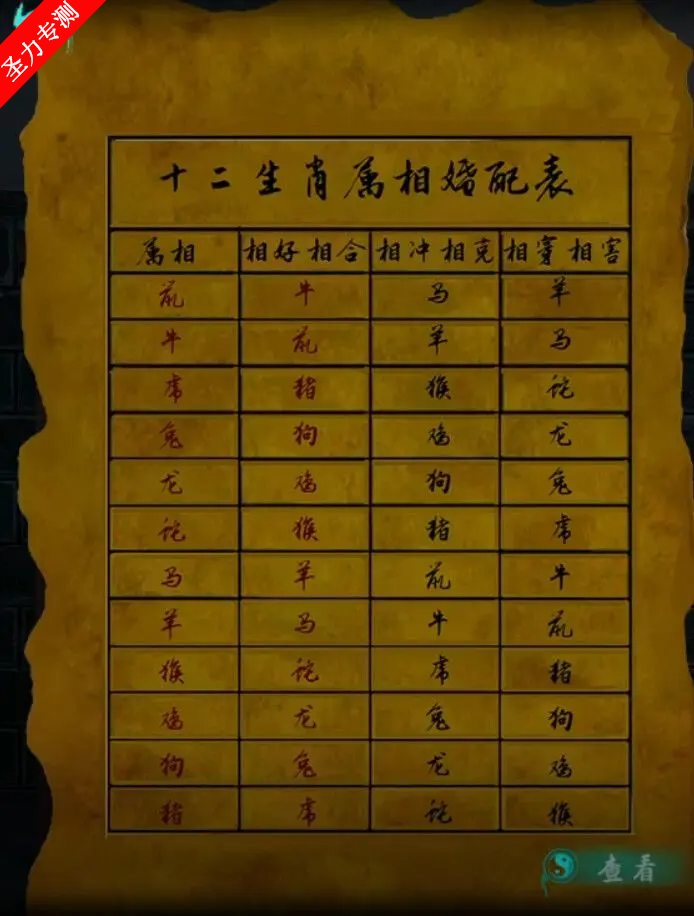 圣力专测
十二生肖属相婚配表
属相 相好相合 相冲相克 相穿相害
鼠 牛 马 羊
牛 鼠 羊 马
虎 猪 猴 蛇
兔 狗 鸡 龙
龙 鸡 狗 兔
蛇 猴 猪 虎
马 羊 鼠 牛
羊 马 牛 鼠
猴 蛇 虎 猪
鸡 龙 兔 狗
狗 兔 龙 鸡
猪 虎 蛇 猴
查看